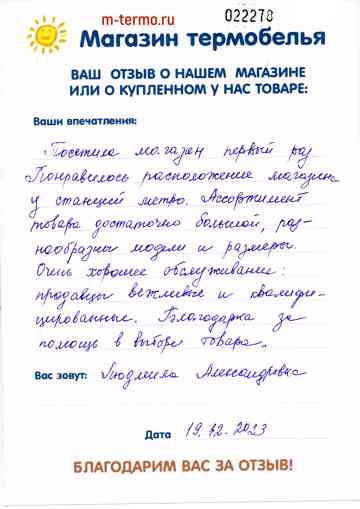 m-termo.ru
022278
Магазин термобелья
ВАШ ОТЗЫВ О НАШЕМ МАГАЗИНЕ
ИЛИ О КУПЛЕННОМ У НАС ТОВАРЕ:
Ваши впечатления:
Посетила магазин первый раз
Понравилось расположение магазина
у станции метро. Ассортимент
товара достаточно большой, раз-
нообразны модели и размеры.
Очень хорошее обслуживание:
продавцы вежливые и квалифи-
цированные. Благодарна за
помощь в выборе товара.
Вас зовут: Людмила Александровна
Дата 19.12.2023
БЛАГОДАРИМ ВАС ЗА ОТЗЫВ!